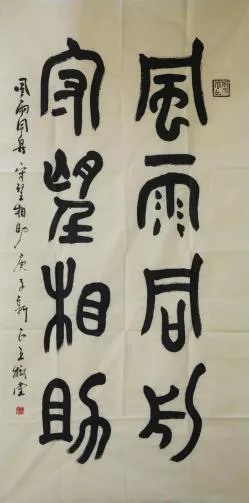 風雨同舟
守望相助
風雨同舟 守望相助 庚子新正